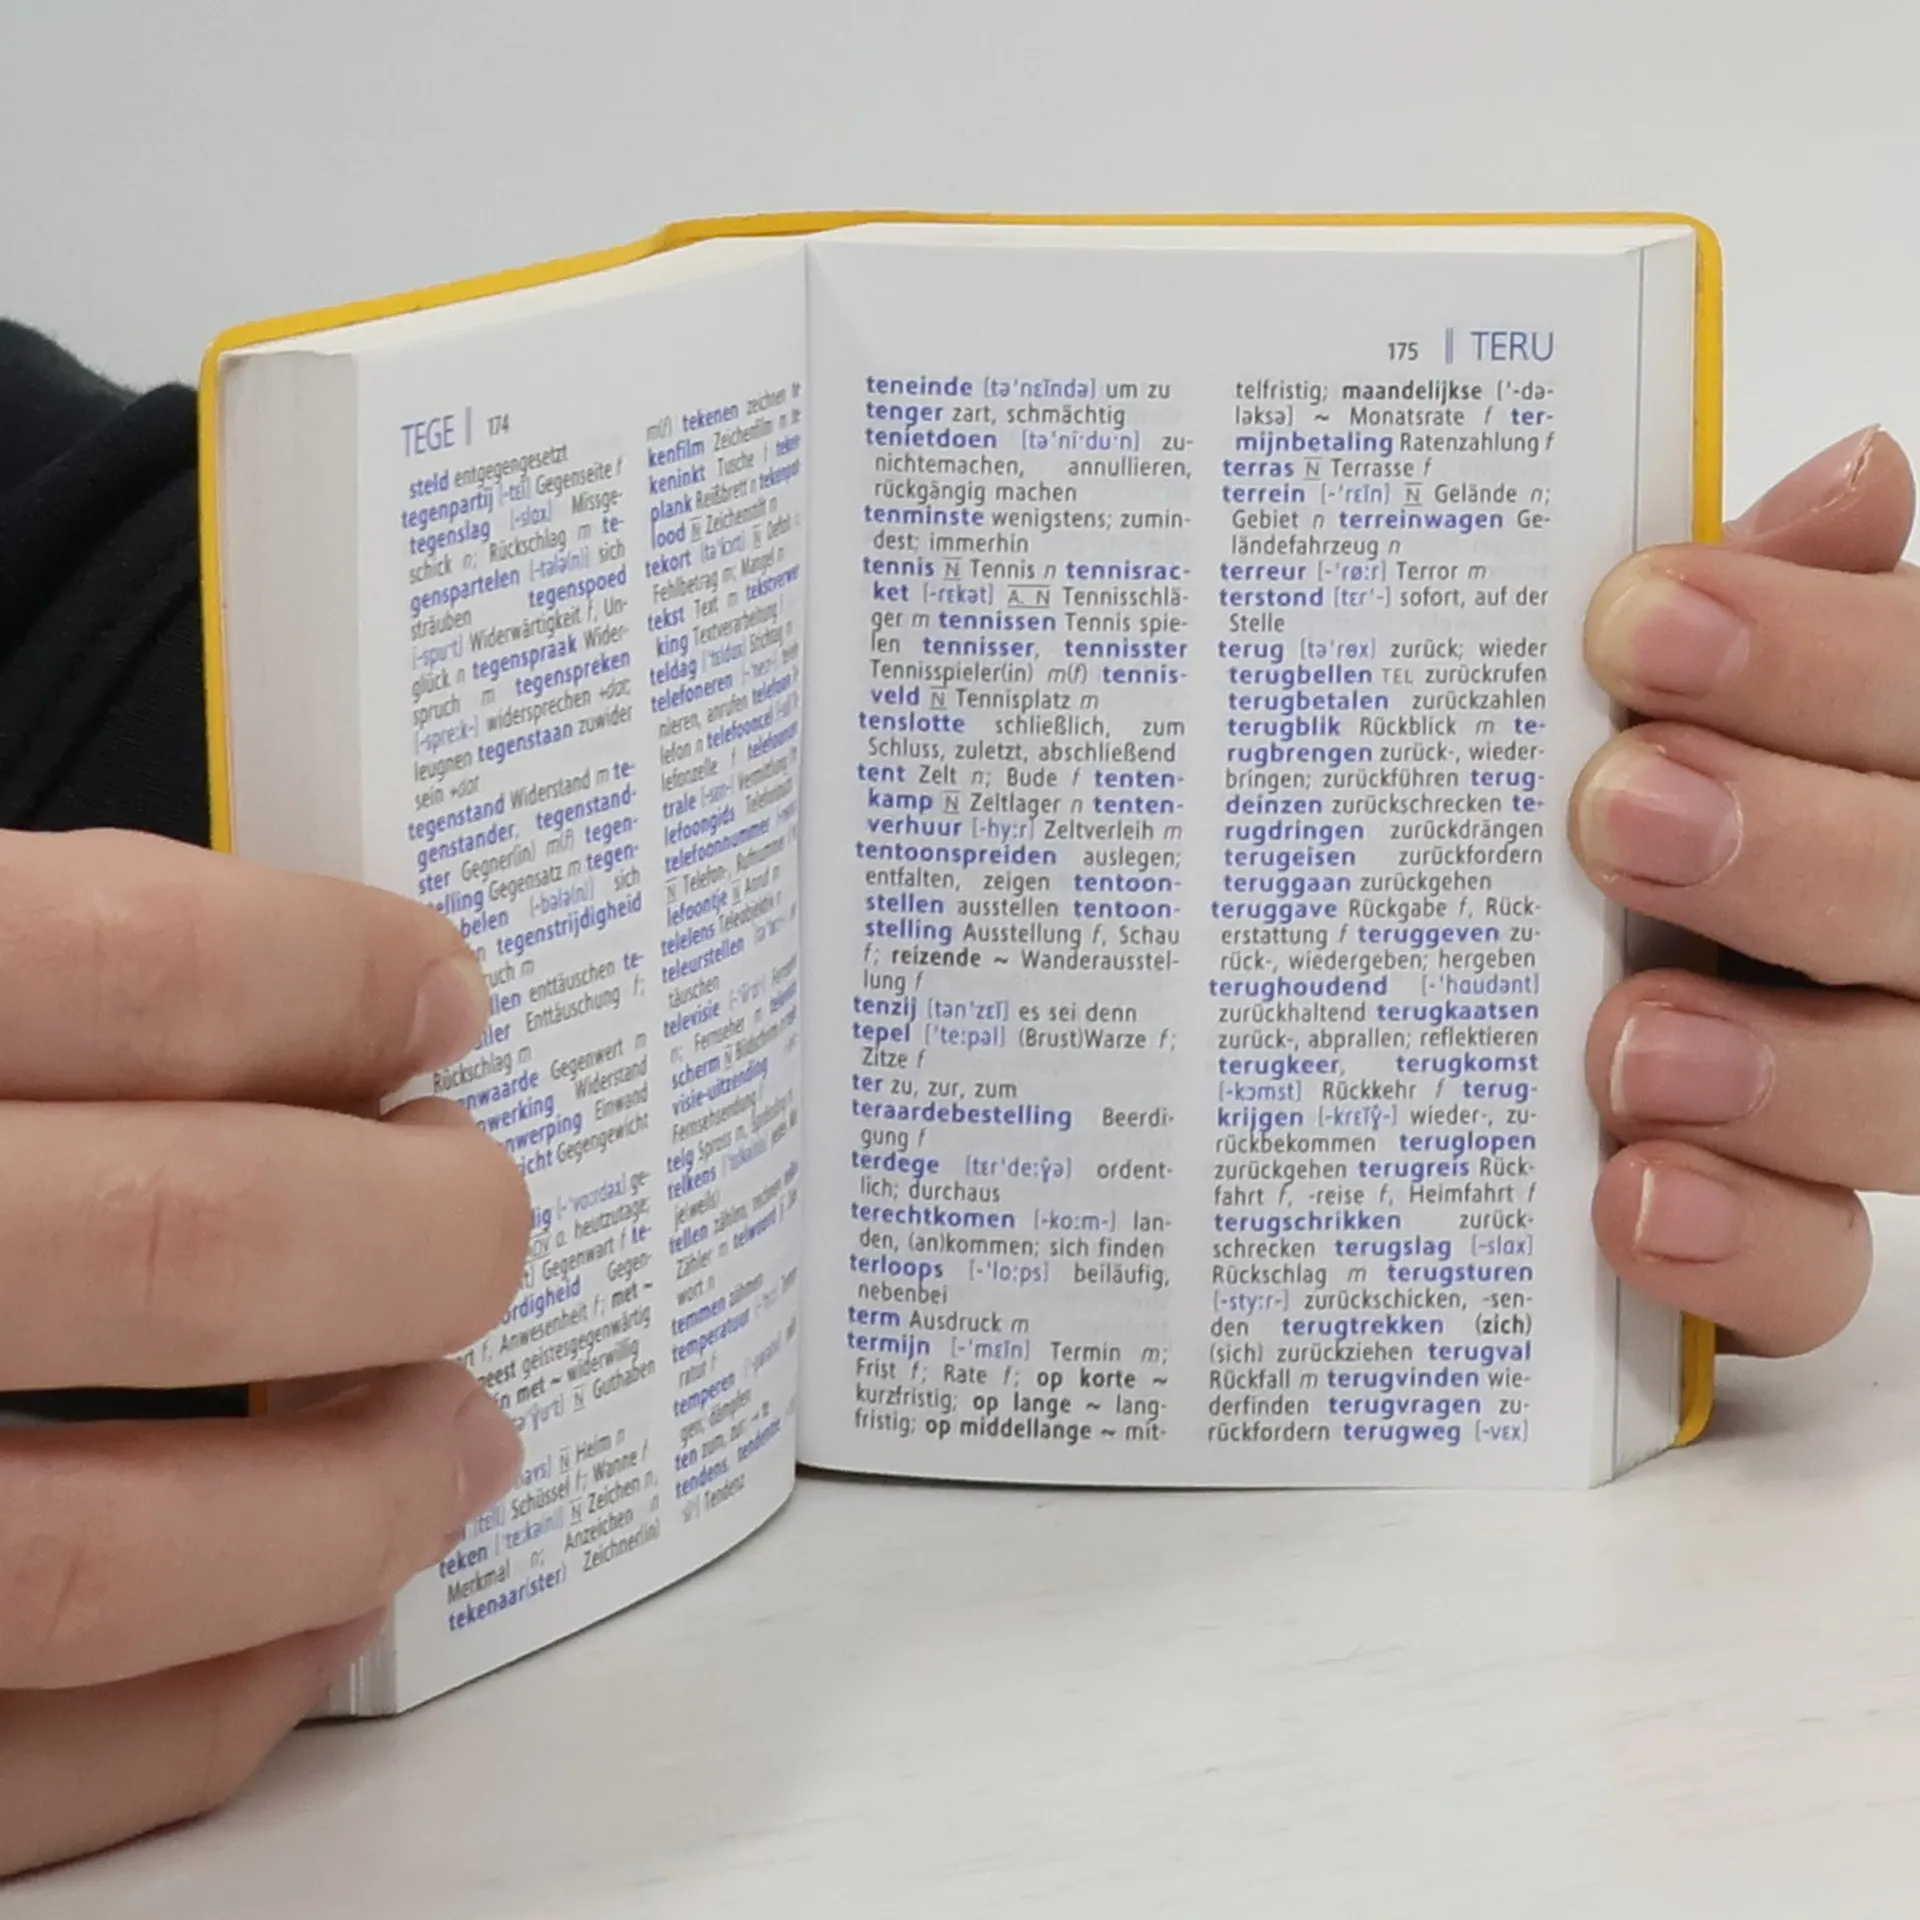 TEGE | 174
steld entgegengesetzt
tegenpartij [-tɛĭ] Gegenseite f
tegenslag [-slɑx] Missge-
schick n; Rückschlag m te-
genspartelen [-tələ(n)] sich
sträuben tegenspoed
[-spu·t] Widerwärtigkeit f, Un-
glück n tegenspraak Wider-
spruch m tegenspreken
[-spre:k-] widersprechen +dat;
leugnen tegenstaan zuwider
sein +dat
tegenstand Widerstand m te-
genstander, tegenstand-
ster Gegner(in) m(f) tegen-
stelling Gegensatz m tegen-
belen [-bələ(n)] sich
tegenstrijdigheid
enttäuschen te-
Enttäuschung f;
Rückschlag m
Gegenwert m
Widerstand
Einwand
Gegengewicht
[-'vo:rdəx] ge-
heutzutage;
Gegenwart f te-
Gegen-
Anwesenheit f; met ~
geistesgegenwärtig
met ~ widerwillig
N Guthaben
N Heim n
Schüssel f; Wanne f
teken ['te:kə(n)] N Zeichen n;
Merkmal n; Anzeichen n
tekenaar(ster) Zeichner(in)
m(f) tekenen zeichnen te-
kenfilm Zeichenfilm m te-
keninkt Tusche f teken-
plank Reißbrett n tekenpot-
lood N Zeichenstift n
tekort [tə'kɔrt] N Defizit n;
Fehlbetrag m; Mangel m
tekst Text m tekstverwer-
king Textverarbeitung f
teldag Stichtag m
telefoneren
nieren, anrufen telefoon
lefon n telefooncel
lefonzelle f telefooncen-
trale Vermittlung f
lefoongids Telefonbuch
telefoonnummer
N Telefon-, Rufnummer f
lefoontje N Anruf m
telelens Teleobjektiv n
teleurstellen
täuschen
televisie
n; Fernseher m
scherm N Bildschirm m
visie-uitzending
Fernsehsendung f
telg Spross m,
telkens
je(weils)
tellen zählen, rechnen
Zähler m telwoord
wort n
temmen zähmen
temperatuur
ratur f
temperen
gen, dämpfen
ten zum, zur; → te
tendens, tendentie
Tendenz
175 || TERU
teneinde [tə'nɛĭndə] um zu
tenger zart, schmächtig
tenietdoen [tə'ni·du·n] zu-
nichtemachen, annullieren,
rückgängig machen
tenminste wenigstens; zumin-
dest; immerhin
tennis N Tennis n tennisrac-
ket [-rɛkət] A. N Tennisschlä-
ger m tennissen Tennis spie-
len tennisser, tennisster
Tennisspieler(in) m(f) tennis-
veld N Tennisplatz m
tenslotte schließlich, zum
Schluss, zuletzt, abschließend
tent Zelt n; Bude f tenten-
kamp N Zeltlager n tenten-
verhuur [-hy:r] Zeltverleih m
tentoonspreiden auslegen;
entfalten, zeigen tentoon-
stellen ausstellen tentoon-
stelling Ausstellung f, Schau
f; reizende ~ Wanderausstel-
lung f
tenzij [tən'zɛĭ] es sei denn
tepel ['te:pəl] (Brust)Warze f;
Zitze f
ter zu, zur, zum
teraardebestelling Beerdi-
gung f
terdege [tɛr'de:ɣ̊ə] ordent-
lich; durchaus
terechtkomen [-ko:m-] lan-
den, (an)kommen; sich finden
terloops [-'lo:ps] beiläufig,
nebenbei
term Ausdruck m
termijn [-'mɛĭn] Termin m;
Frist f; Rate f; op korte ~
kurzfristig; op lange ~ lang-
fristig; op middellange ~ mit-
telfristig; maandelijkse ['-də-
ləksə] ~ Monatsrate f ter-
mijnbetaling Ratenzahlung f
terras N Terrasse f
terrein [-'rɛĭn] N Gelände n;
Gebiet n terreinwagen Ge-
ländefahrzeug n
terreur [-'rø:r] Terror m
terstond [tɛr'-] sofort, auf der
Stelle
terug [tə'rɵx] zurück; wieder
terugbellen TEL zurückrufen
terugbetalen zurückzahlen
terugblik Rückblick m te-
rugbrengen zurück-, wieder-
bringen; zurückführen terug-
deinzen zurückschrecken te-
rugdringen zurückdrängen
terugeisen zurückfordern
teruggaan zurückgehen
teruggave Rückgabe f, Rück-
erstattung f teruggeven zu-
rück-, wiedergeben; hergeben
terughoudend [-'hɑudənt]
zurückhaltend terugkaatsen
zurück-, abprallen; reflektieren
terugkeer, terugkomst
[-kɔmst] Rückkehr f terug-
krijgen [-krɛĭɣ̊-] wieder-, zu-
rückbekommen teruglopen
zurückgehen terugreis Rück-
fahrt f, -reise f, Heimfahrt f
terugschrikken zurück-
schrecken terugslag [-slɑx]
Rückschlag m terugsturen
[-sty:r-] zurückschicken, -sen-
den terugtrekken (zich)
(sich) zurückziehen terugval
Rückfall m terugvinden wie-
derfinden terugvragen zu-
rückfordern terugweg [-vɛx]